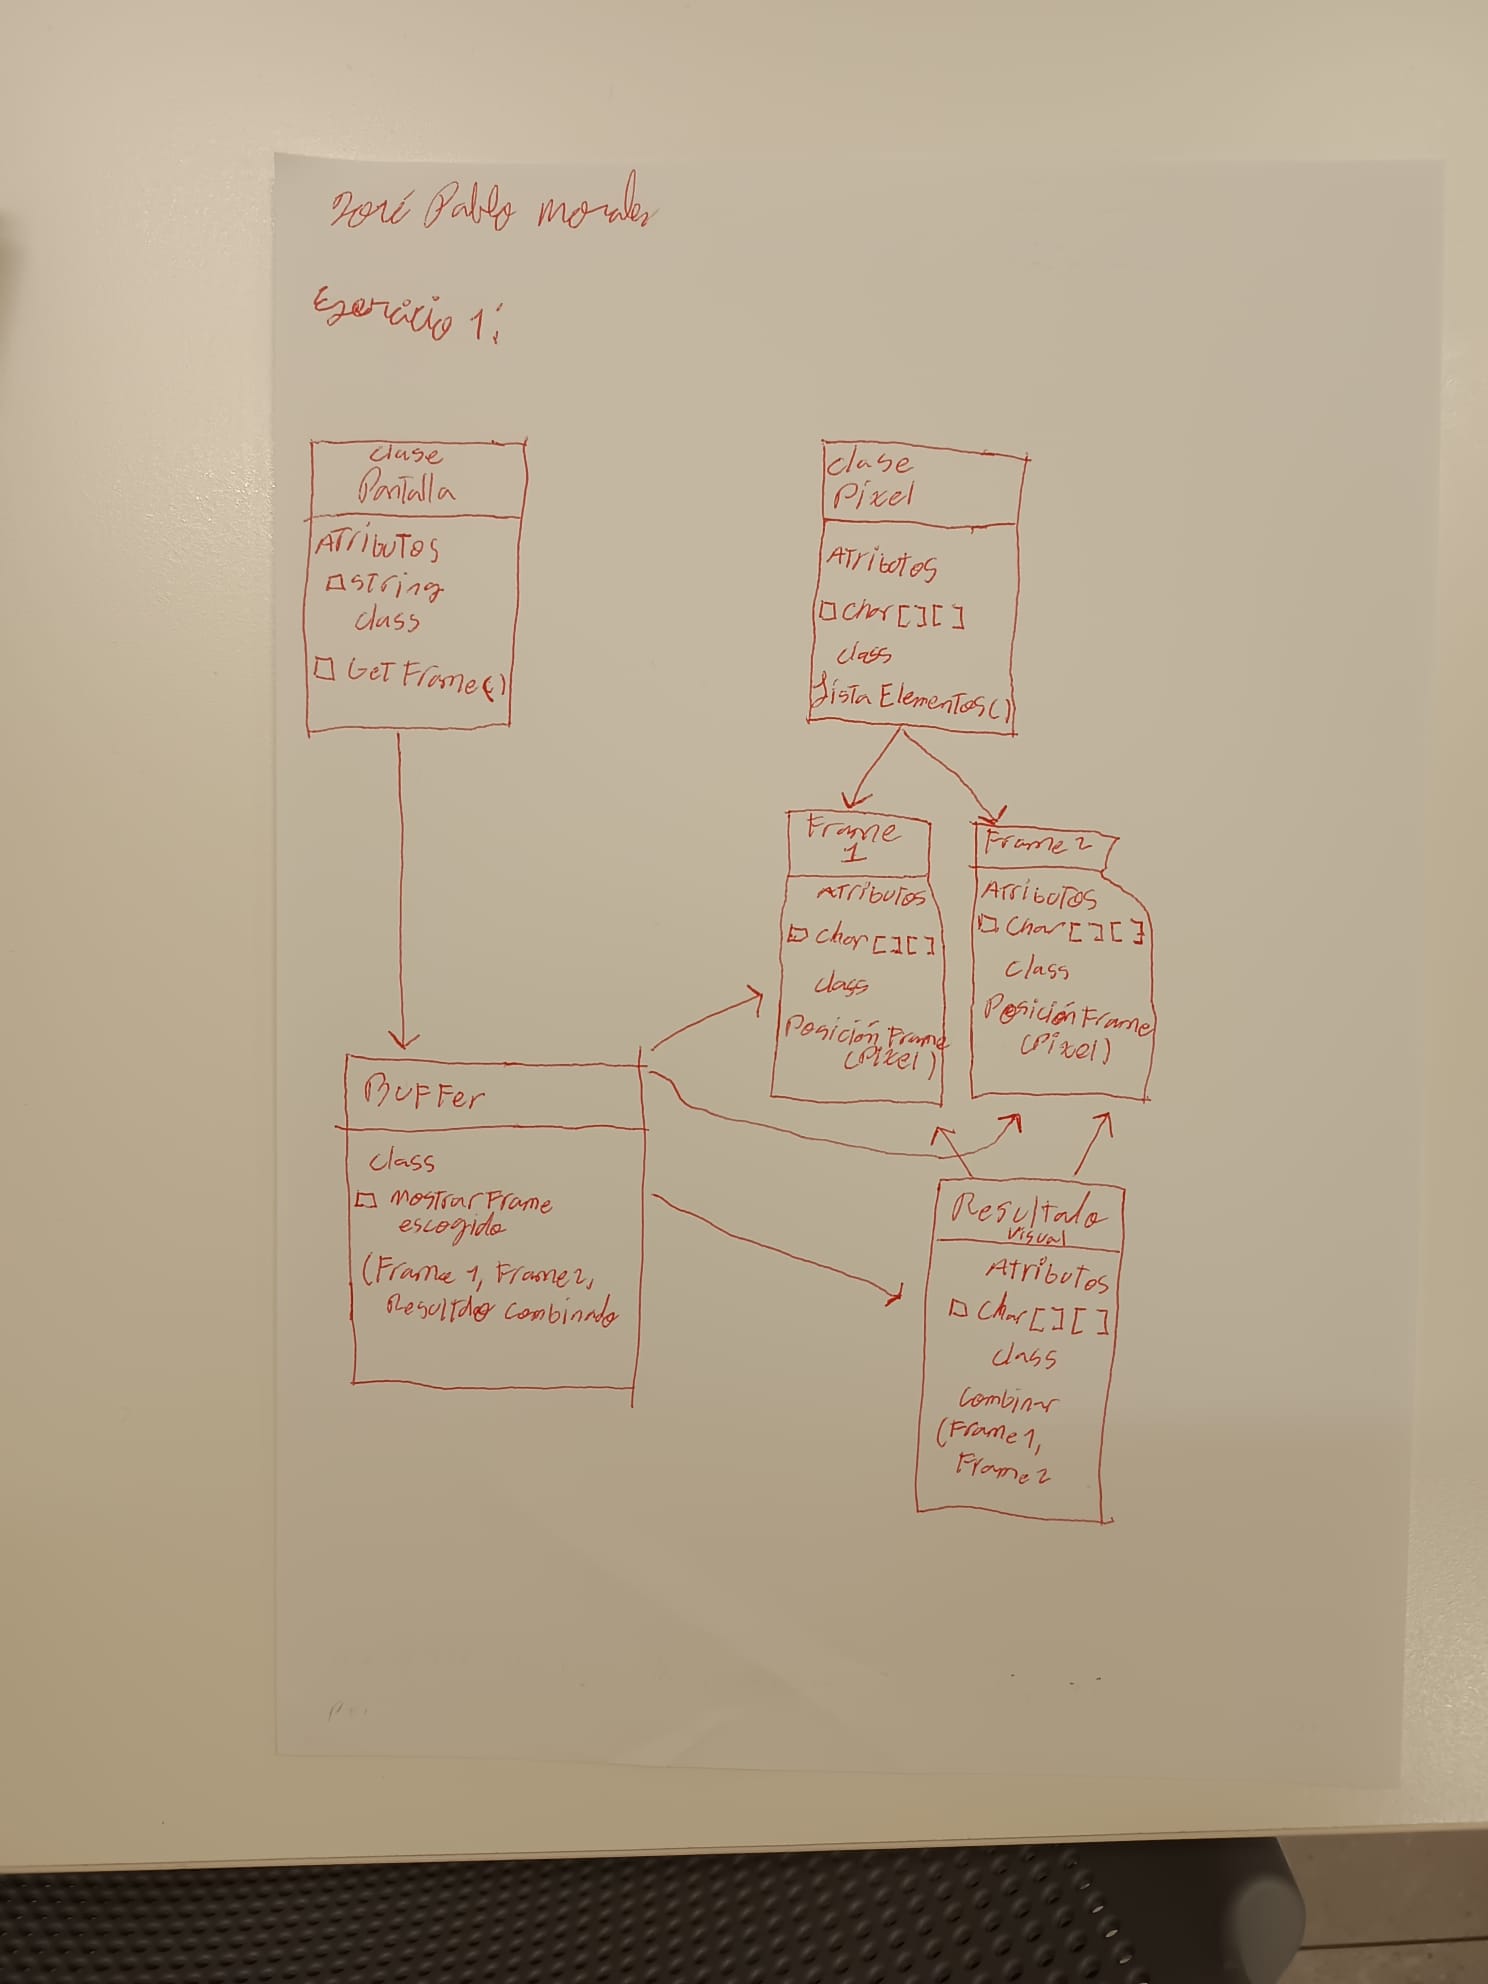 José Pablo Morales
Ejercicio 1:
clase
Pantalla
Atributos
string
class
Get Frame()
clase
Pixel
Atributos
char[][]
class
Lista Elementos()
Frame
1
Atributos
char[][]
class
Posición Frame
(Pixel)
Frame 2
Atributos
char[][]
class
Posición Frame
(Pixel)
Buffer
class
Mostrar Frame
escogido
(Frame 1, Frame 2,
Resultdo combinado
Resultado
visual
Atributos
char[][]
class
combinar
(Frame 1,
Frame 2